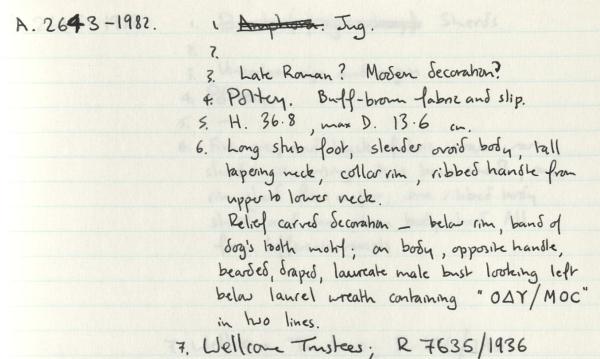 A. 2643-1982. 1. Amphora. Jug.
2.
3. Late Roman? Modern decoration?
4. Pottery. Buff-brown fabric and slip.
5. H. 36.8, max D. 13.6 cm.
6. Long stub foot, slender ovoid body, tall
tapering neck, collar rim, ribbed handle from
upper to lower neck.
Relief carved decoration - below rim, band of
dog's tooth motif; on body, opposite handle,
bearded, draped, laureate male bust looking left
below laurel wreath containing "ΟΔΥ/ΜΟC"
in two lines.
7. Wellcome Trustees; R 7635/1936